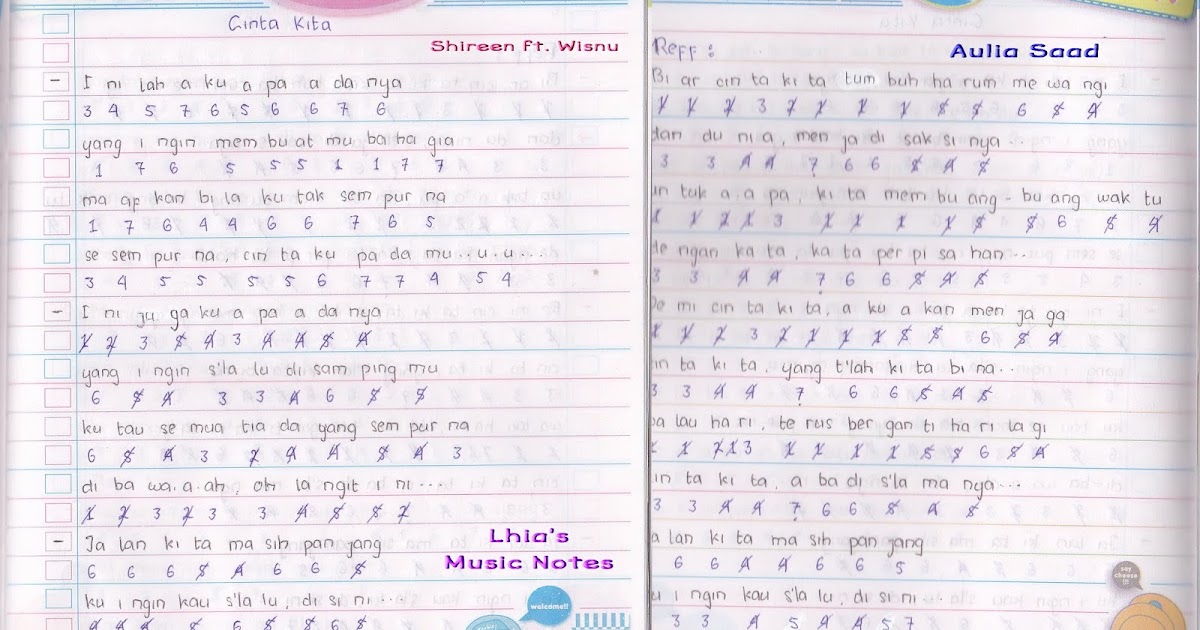 Cinta Kita
Shireen Ft. Wisnu
- I ni lah a ku a pa a da nya
3 4 5 7 6 5 6 6 7 6
yang i ngin mem bu at mu ba ha gia
1 7 6 5 5 5 1 1 7 7
ma ap kan bi la ku tak sem pur na
1 7 6 4 4 6 6 7 6 5
se sem pur na, cin ta ku pa da mu..u..u...
3 4 5 5 5 5 6 7 7 4 5 4
- I ni ju ga ku a pa a da nya
1 2 3 5 4 3 4 4 5 4
yang i ngin s'la lu di sam ping mu
6 5 4 3 3 4 6 5 5
ku tau se mua tia da yang sem pur na
6 5 4 3 2 4 4 5 4 3
di ba wa.a.ah, oh la ngit i ni....
1 2 3 2 3 3 4 5 5 2
- Ja lan ki ta ma sih pan jang
6 6 6 5 4 6 6 5
ku i ngin kau s'la lu, di si ni...
Lhia's
Music Notes
welcome!!
Aulia Saad
Reff :
Bi ar cin ta ki ta tum buh ha rum me wa ngi
1 1 2 3 2 1 1 1 5 5 6 5 4
dan du ni a, men ja di sak si nya
3 3 4 4 7 6 6 5 4 5
tuk a a pa, ki ta mem bu ang - bu ang wak tu
1 1 2 1 3 1 1 1 1 5 5 6 5 4
ngan ka ta, ka ta per pi sa han..
3 3 4 4 7 6 6 5 4 5
mi cin ta ki ta, a ku a kan men ja ga
1 1 2 3 2 1 1 1 5 5 6 5 4
in ta ki ta, yang t'lah ki ta bi na..
3 3 4 4 7 6 6 5 4 5
lau ha ri, te rus ber gan ti ha ri la gi
1 2 1 3 1 1 1 1 5 5 6 5 4
in ta ki ta, a ba di s'la ma nya...
3 3 4 4 7 6 6 5 4 5
a lan ki ta ma sih pan jang
6 6 4 4 6 6 5
u i ngin kau s'la lu, di si ni...
3 3 4 5 4 4 5 7
say cheese !!!